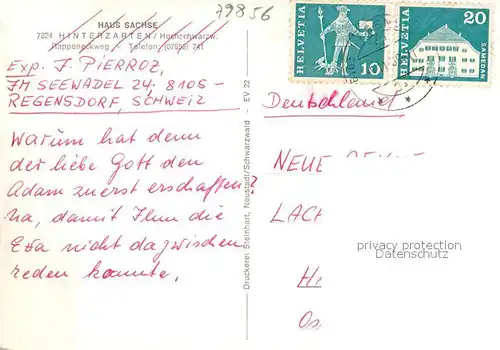 79856
HAUS SACHSE
7824 HINTERZARTEN / Hochschwarzw.
Rapponeckweg - Telefon: (07652) 741
Exp. J. PIERROZ,
IM SEEWADEL 24. 8105 -
REGENSDORF, SCHWEIZ
Warum hat denn
der liebe Gott den
Adam zuerst erschaffen?
na, damit Ihm die
Eva nicht dazwischen
reden konnte.
Druckerei Steinhart, Neustadt/Schwarzwald - EV 22
HELVETIA
10
20
HELVETIA
SAMEDAN
Deutschland
NEUE
LACH
privacy protection
Datenschutz